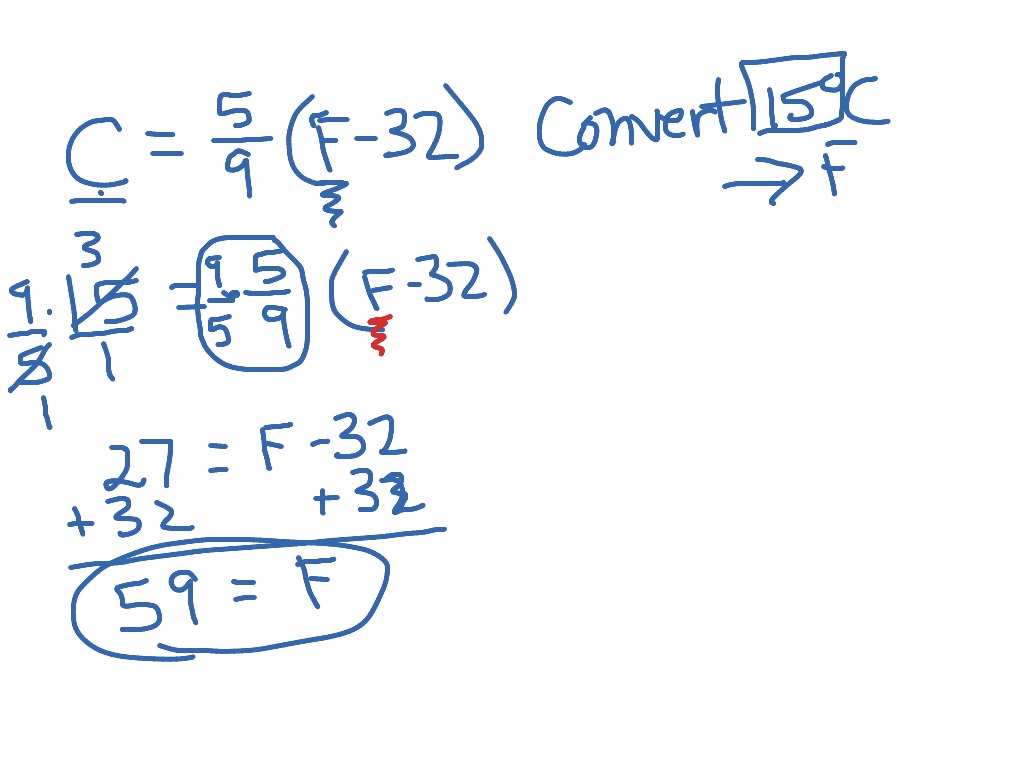 C = 5/9 (F - 32)
Convert 15°C
→ F
9/5 · 15/1 = 9/5 · 5/9 (F - 32)
3
1
27 = F - 32
+ 32 + 32
59 = F